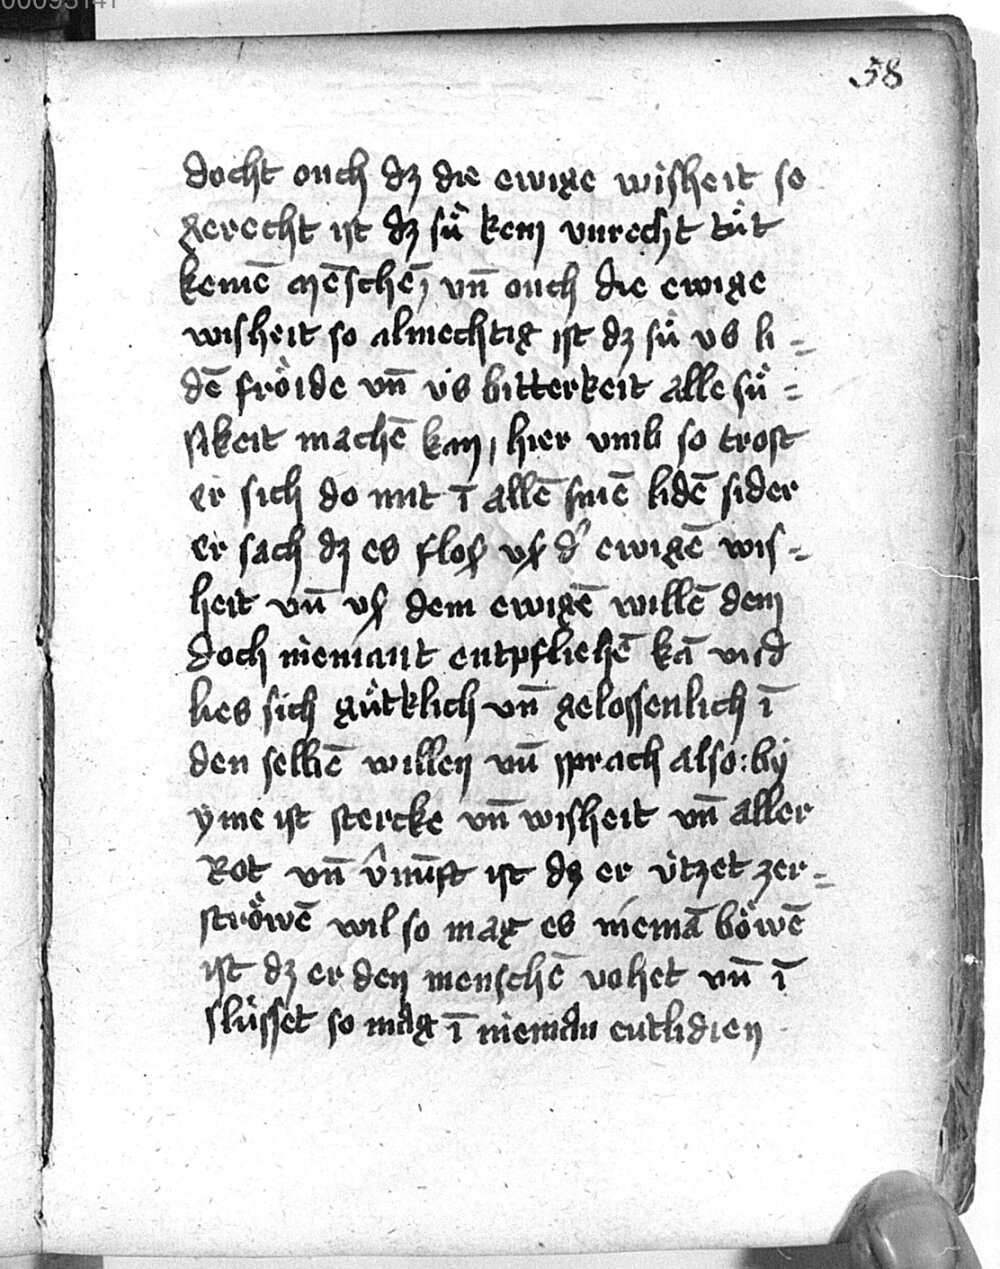 58
docht ouch dz die ewige wisheit so
gerecht ist dz sú̍ kein vnrecht tuͤt
keinē mēschē, vn̄ ouch die ewige
wisheit so almechtig ist dz sú̍ vs li=
dē froͤide vn̄ vs bitterkeit alle suͤ=
sikeit machē kan, hier vmb so trost
er sich do mit ī allē sinē lidē sider
er sach dz es flos vs d' ewigē wis=
heit vn̄ vs dem ewigē willē dem
doch niemant entpfliehē kā vnd
lies sich guͤtklich vn̄ gelossenlich ī
den selbē willen vn̄ sprach also: by
yme ist stercke vn̄ wisheit vn̄ aller
Rot vn̄ v̂nūft ist dz er útzet zer=
stroͤwē wil so mag es niemā boͤwē
ist dz er den menschē vohet vn̄ ī
slússet so mag ī nieman entlidien